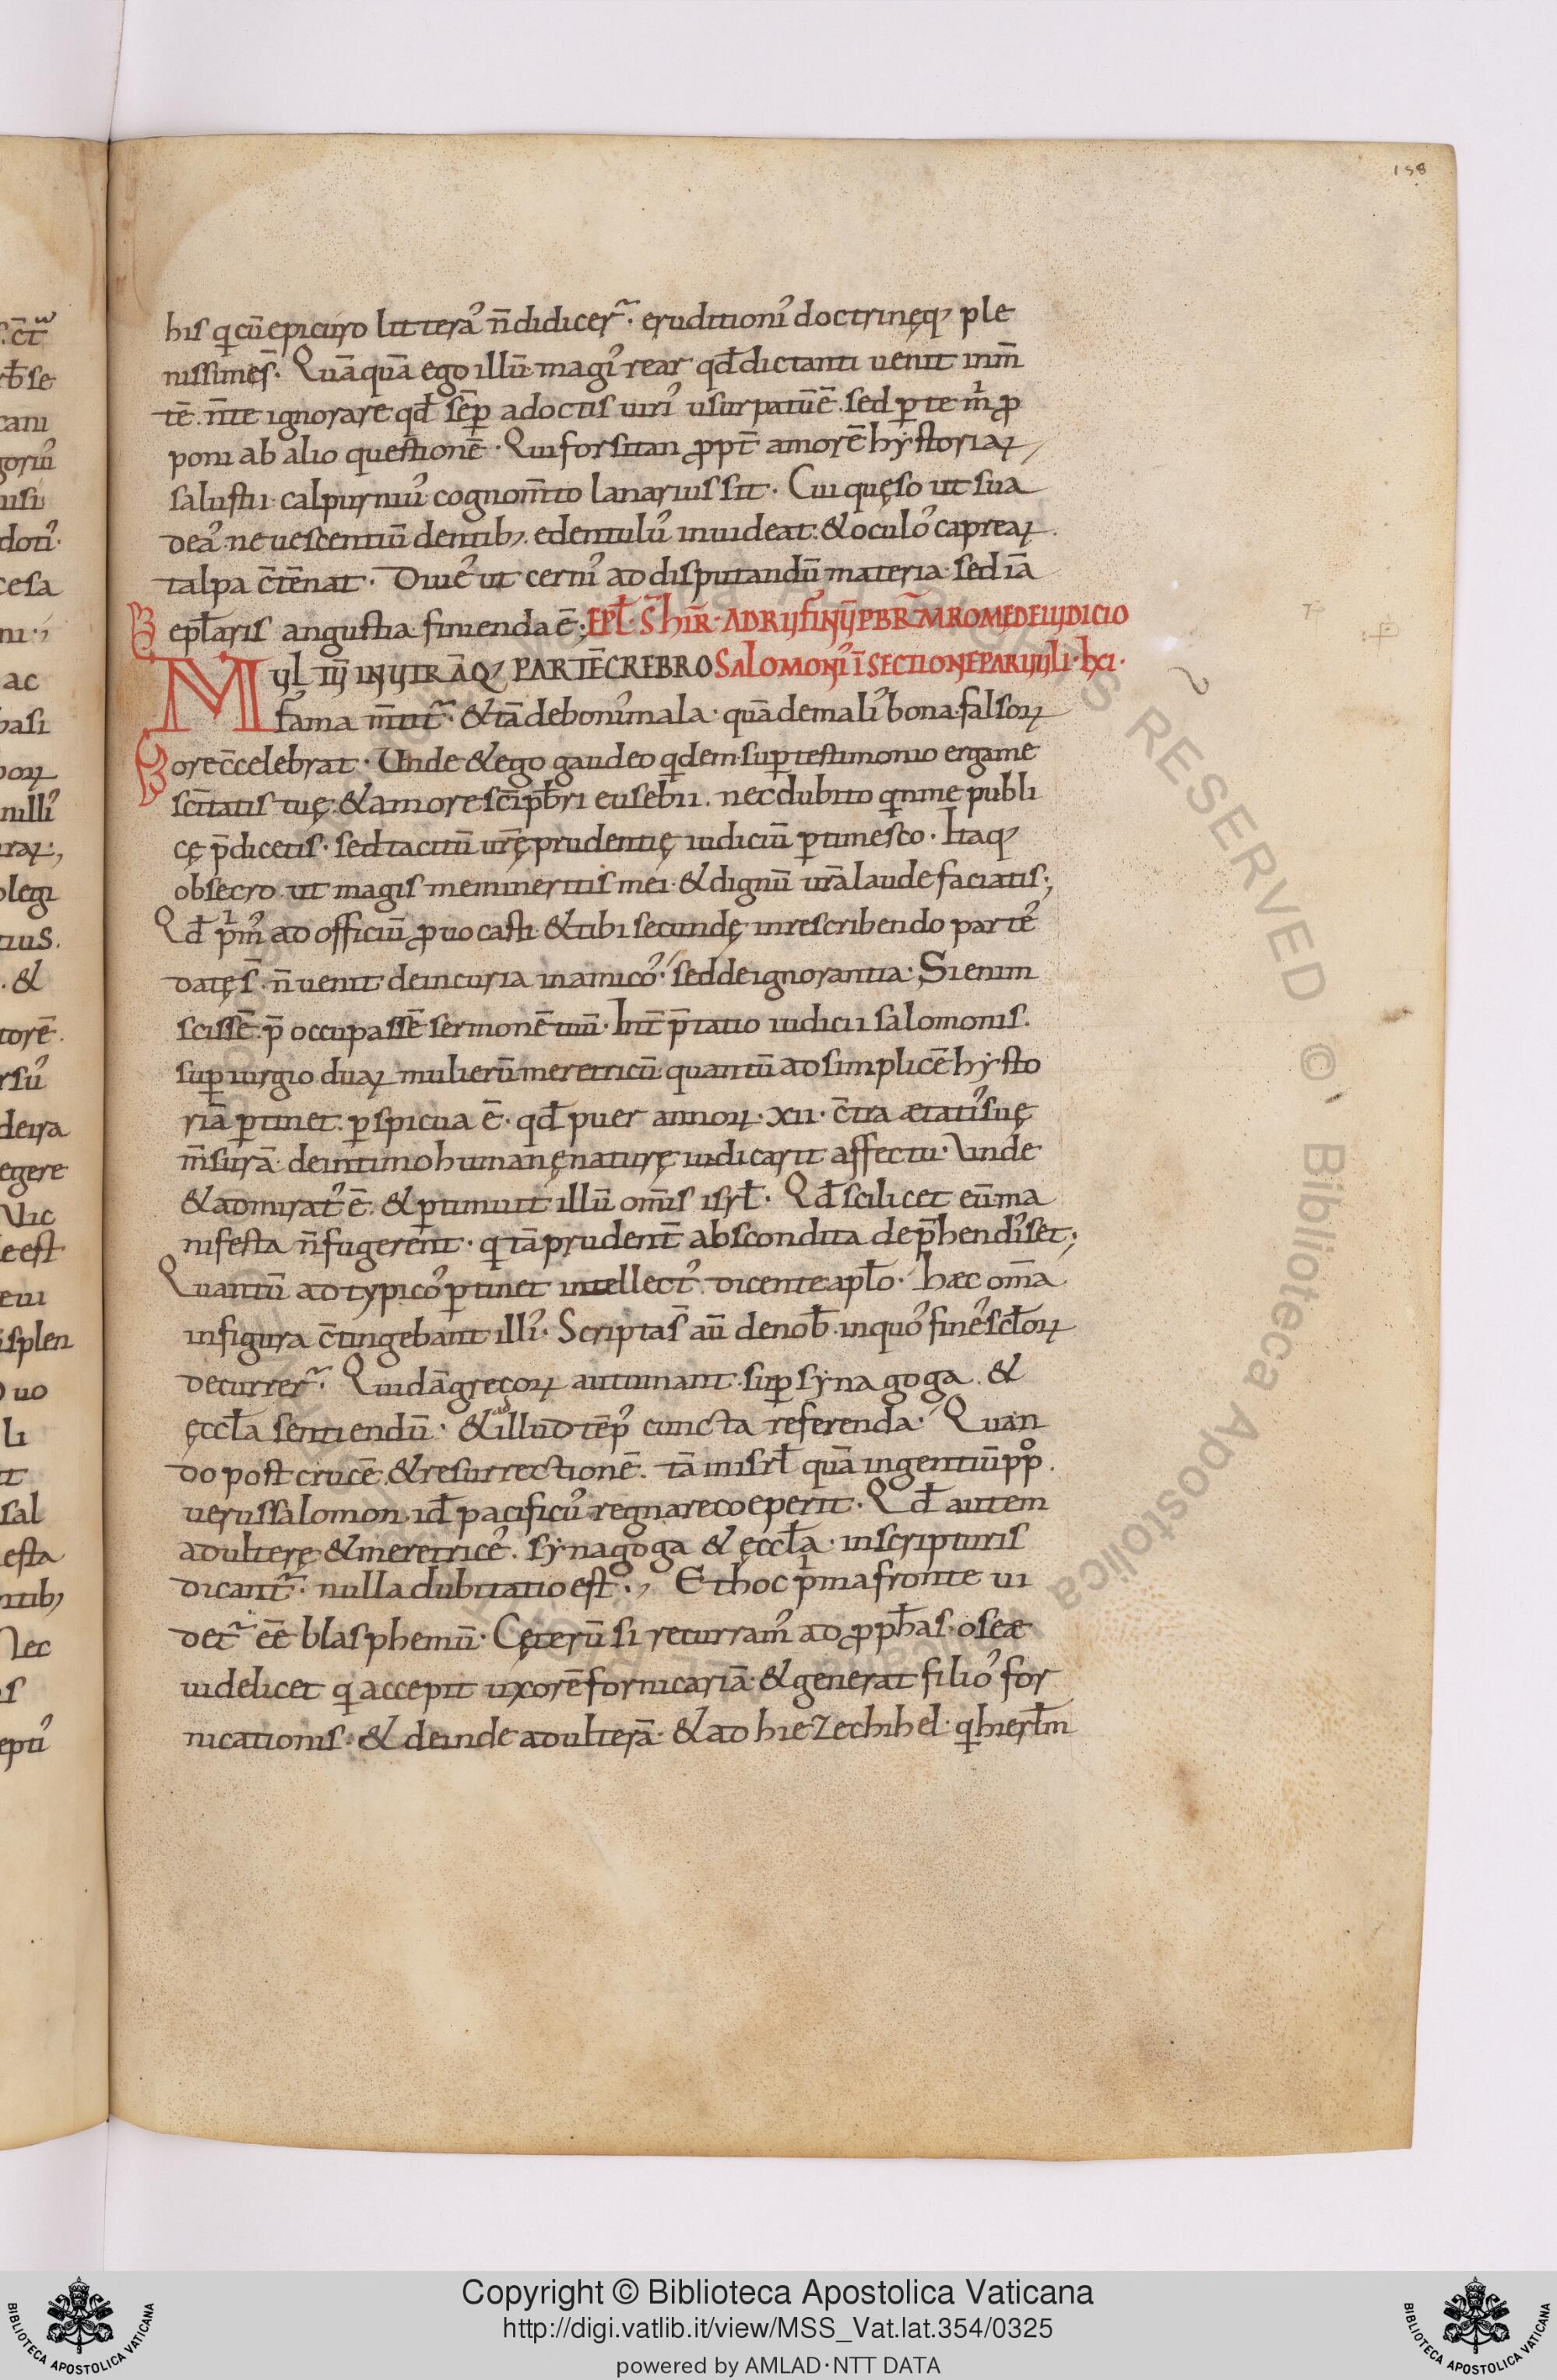 158
his q cū epicuro litteraʼ n̄ didicerʼ· eruditioniʼ doctrinęq; ple
nissimęs̄· Quāquā ego illū magiʼ rear qd̄ dictanti uenit in m̄
tē· n̄ te ignorare qd̄ sēp a doctis uiriʼ usurpatū ē· sed p te m̄ ꝓ
poni ab alio questionē· Qui forsitan ꝓpt̄ amorē hẏstoriaꝝ
salustii calpurniuʼ cognom̄to lanarius sit· Cui quęso ut sua
deaʼ ne uescentiū dentib; edentuluʼ inuideat· & oculoʼ capreaꝝ·
talpa c̄tēnat· Diueʼ ut cerniʼ ad disputandū materia· sed iā
epl̄aris angustia finienda ē; EPL̄· S̄ HIR̄· AD RUFINŪ PBR̄M ROME DE IUDICIO
MULTŪ IN UTRĀQ; PARTĒ CREBRO SALOMONIʼ Ī SECTIONE PARUULI· LXI·
fama m̄titʼ· & tā de boniʼ mala· quā de maliʼ bona falsoꝝ
ore c̄celebrat· Unde & ego gaudeo qdem sup testimonio erga me
sc̄itatis tuę· & amore sc̄i pb̄ri eusebii· nec dubito qn me publi
cę p̄dicetis· sed tacitū ur̄ę prudentię iudiciū ptimesco· Itaq;
obsecro ut magis memineritis mei· & dignū ur̄a laude faciatis;
Qd̄ pmʼ ad officiū ꝓuocasti· & tibi secundę in rescribendo parteʼ
datę s̄· n̄ uenit de incuria in amicoʼ· sed de ignorantia· Si enim
scissē· p̄occupassē sermonē tuū· Int̄p̄tatio iudicii salomonis·
sup iurgio duaꝝ mulierū meretricū quantū ad simplicē hẏsto
riā ptinet· pspicua ē· qd̄ puer annoꝝ· xii· c̄tra ætatiʼ suę
m̄surā· de intimo humanę naturę iudicarit affectu· Unde
& admiratʼ ē· & ptimuit illū om̄is isrl̄· Qd̄ scilicet eū ma
nifesta n̄ fugerent· q tā prudent̄ abscondita dep̄hendiʼset;
Quantū ad typicoʼ ptinet intellectʼ· dicente apl̄o· Hæc om̄a
in figura c̄tingebant illiʼ· Scripta s̄ aū de nob̄· in quoʼ fineʼ scl̄oꝝ
decurrerʼ· Quidā gręcoꝝ autumant· sup sẏnagoga· &
ęccl̄a sentiendū· & ad illud tēpʼ cuncta referenda· Quan
do post crucē & resurrectionē· tā in isrl̄ quā in gentiū pp̊·
uerus salomon id̄ pacificuʼ regnare coeperit· Qd̄ autem
adulterę & meretriceʼ· sẏnagoga & ęccl̄a· in scripturis
dicantʼ· nulla dubitatio est·; Et hoc pma fronte ui
detʼ eē blasphemū· Cęterū si recurramʼ ad ꝓph̄as· oseæ
uidelicet q accepit uxorē fornicariā· & generat filioʼ for
nicationis· & deinde adulterā· & ad hiezechihel· q hierl̄m
Copyright © Biblioteca Apostolica Vaticana
http://digi.vatlib.it/view/MSS_Vat.lat.354/0325
powered by AMLAD·NTT DATA